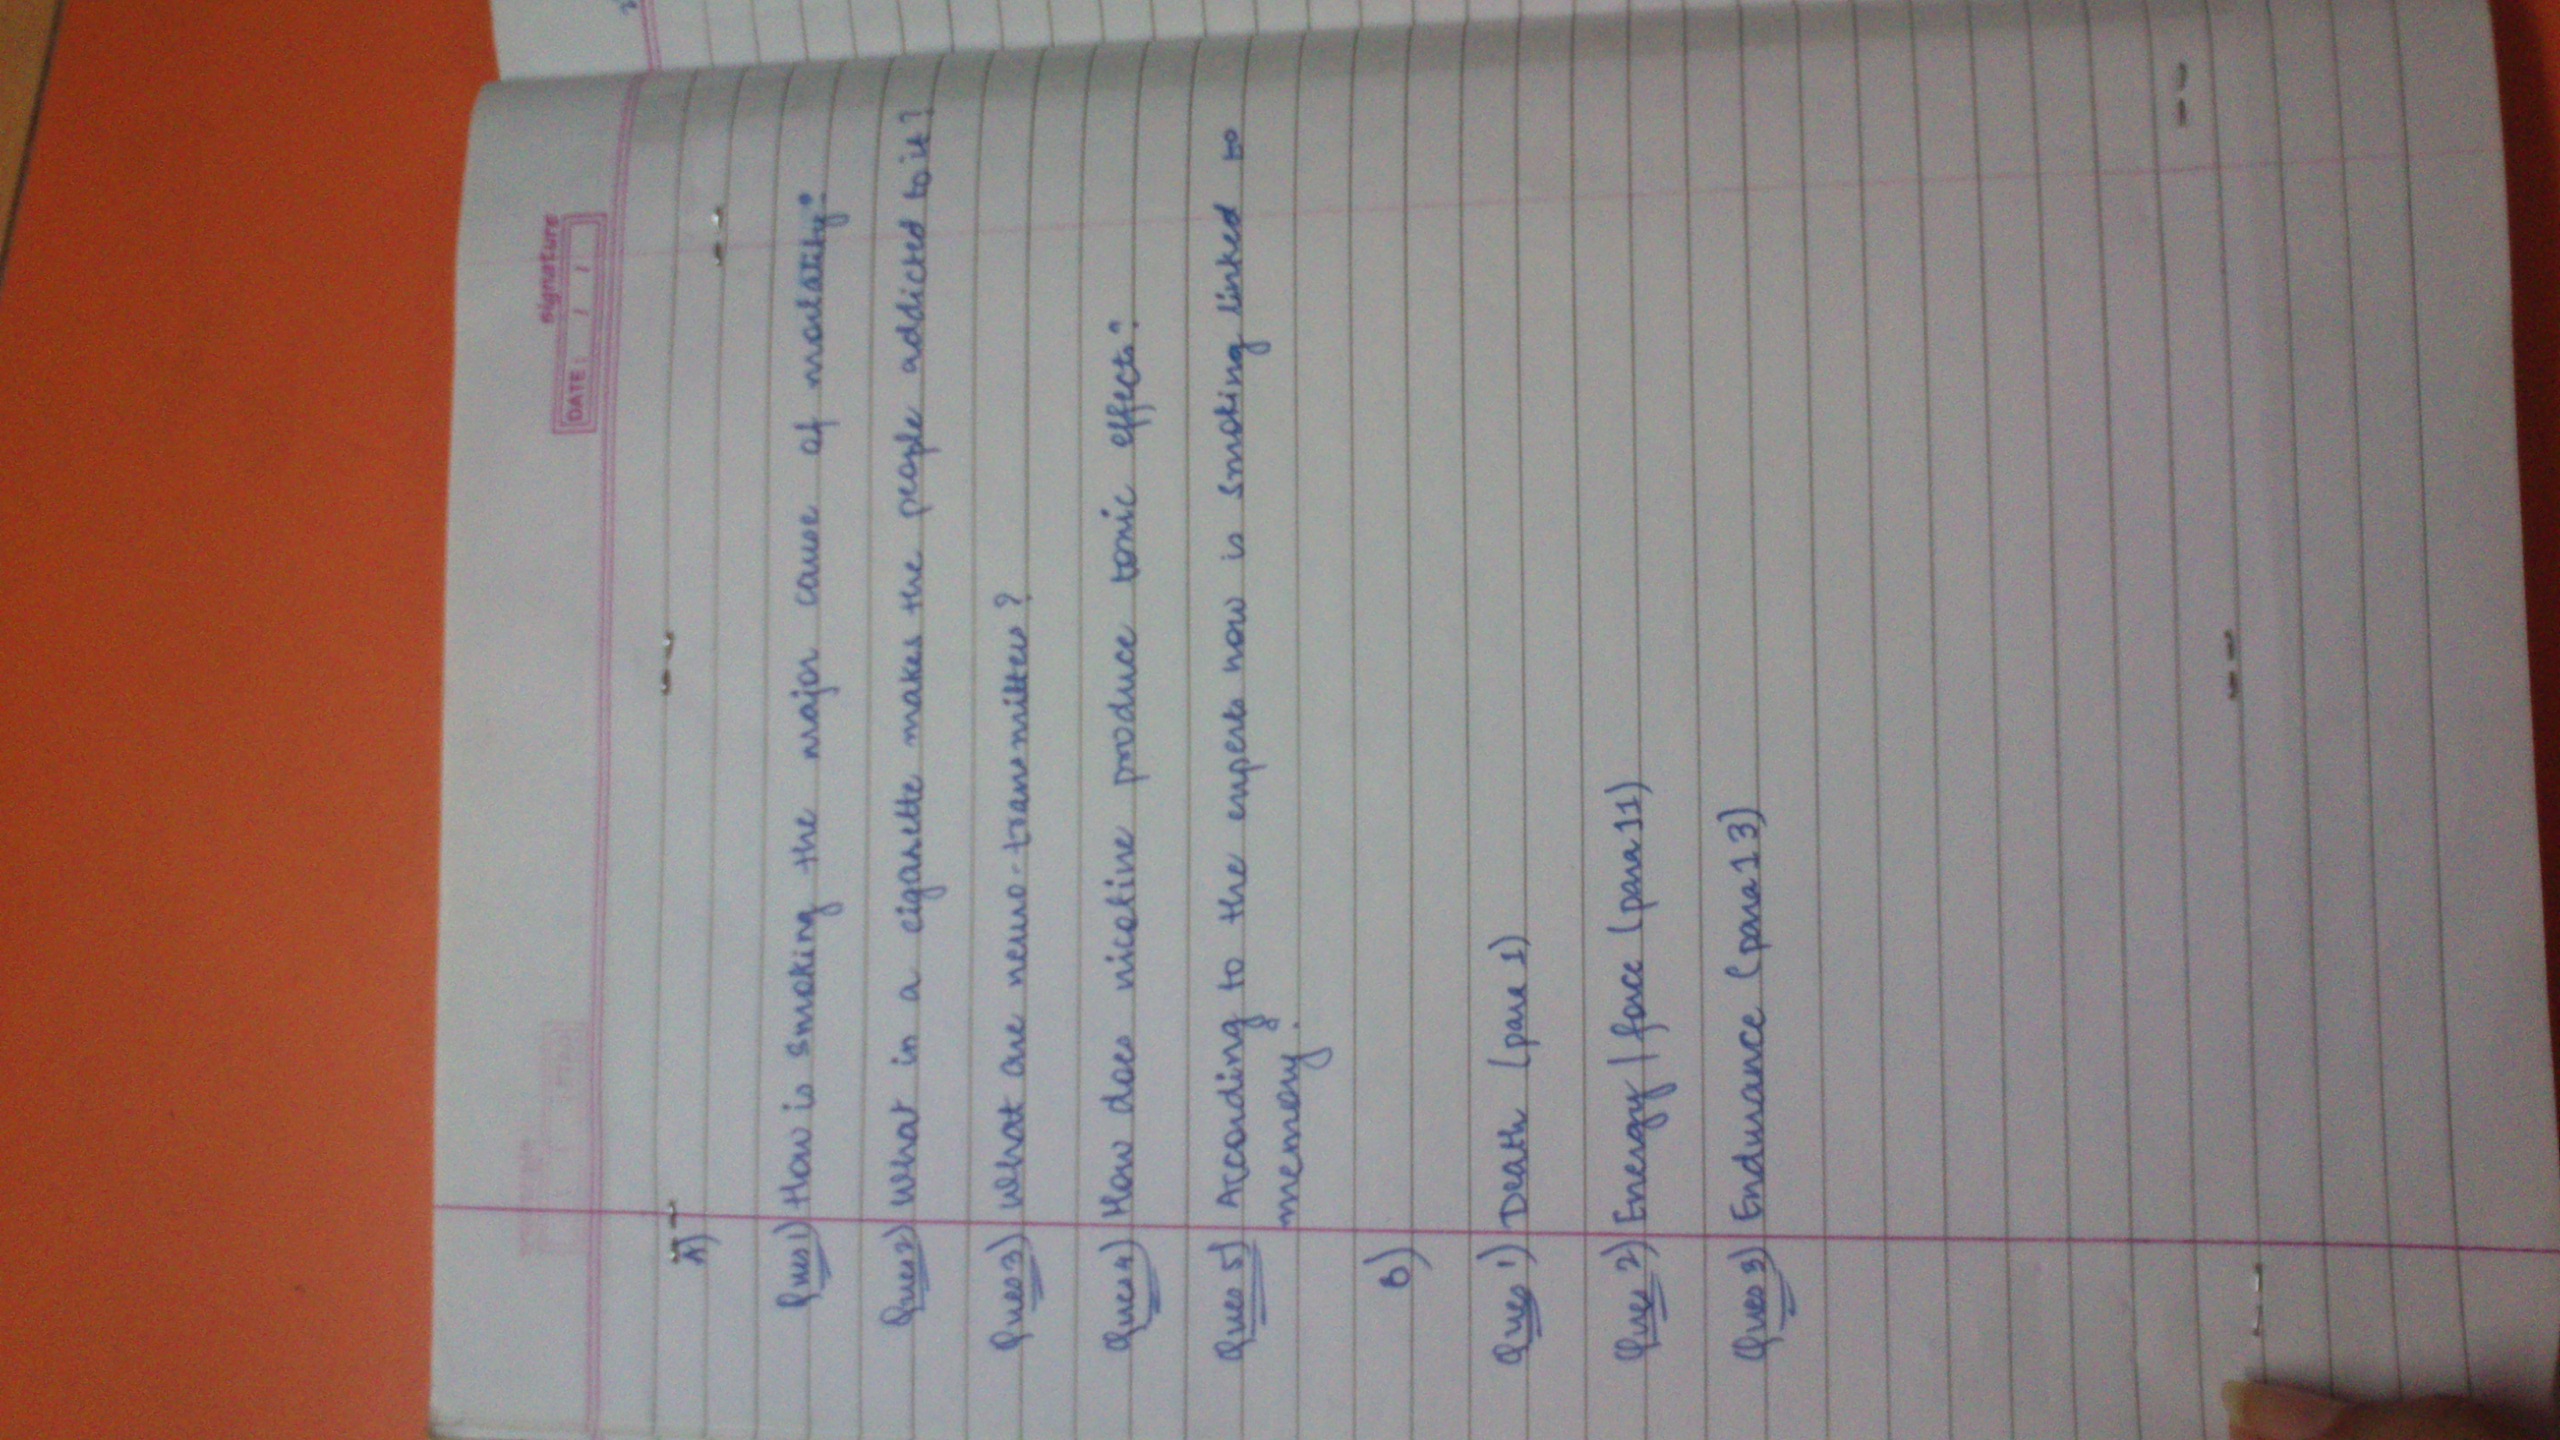 signature
DATE: / /
A)
Ques 1) How is smoking the major cause of mortality?
Ques 2) What in a cigarette makes the people addicted to it?
Ques 3) What are neuro-transmitters?
Ques 4) How does nicotine produce tonic effects?
Ques 5) According to the experts how is smoking linked to
memory?
B)
Ques 1) Death (para 1)
Ques 2) Energy / force (para 11)
Ques 3) Endurance (para 13)